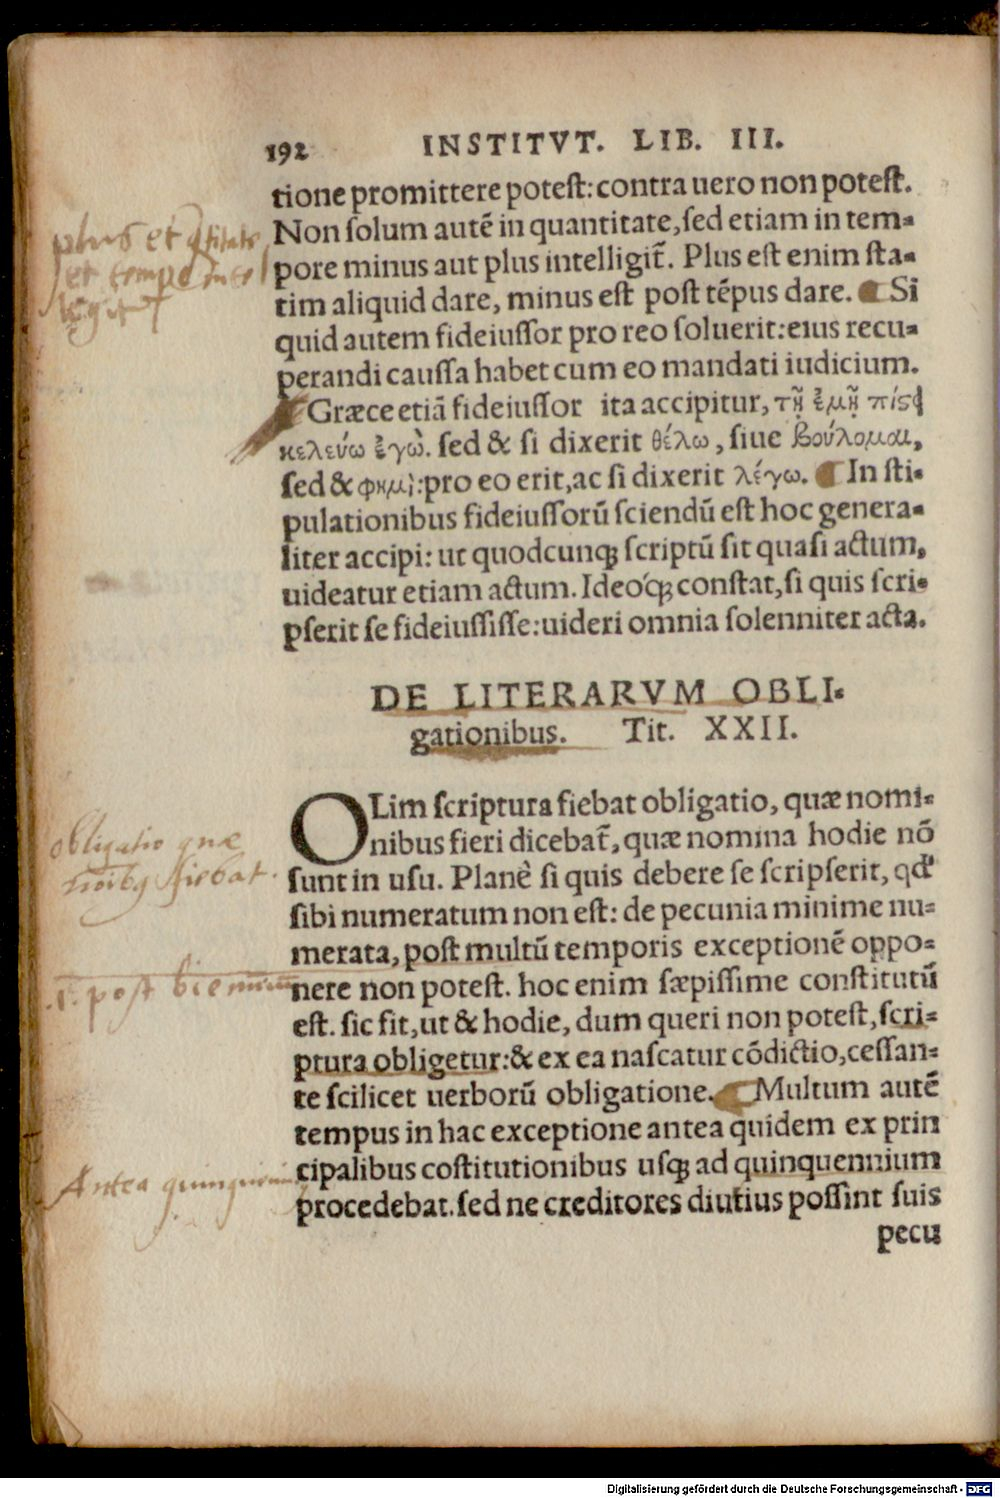 192 INSTITVT. LIB. III.
tione promittere potest: contra uero non potest.
Non solum autē in quantitate, sed etiam in tem-
pore minus aut plus intelligit̃. Plus est enim sta-
tim aliquid dare, minus est post tēpus dare. ¶ Si
quid autem fideiussor pro reo soluerit: eius recu-
perandi caussa habet cum eo mandati iudicium.
¶ Græce etiā fideiussor ita accipitur, τῇ ἐμῇ πίςει
κελεύω ἐγώ. sed & si dixerit θέλω, siue βούλομαι,
sed & φημὶ: pro eo erit, ac si dixerit λέγω. ¶ In sti-
pulationibus fideiussorū sciendū est hoc genera-
liter accipi: ut quodcunq; scriptū sit quasi actum,
uideatur etiam actum. Ideoq́; constat, si quis scri-
pserit se fideiussisse: uideri omnia solenniter acta.
DE LITERARVM OBLI-
gationibus. Tit. XXII.
OLim scriptura fiebat obligatio, quæ nomi-
nibus fieri dicebat̃, quæ nomina hodie nō
sunt in usu. Planè si quis debere se scripserit, qd'
sibi numeratum non est: de pecunia minime nu-
merata, post multū temporis exceptionē oppo-
nere non potest. hoc enim sæpissime constitutū
est. sic fit, ut & hodie, dum queri non potest, scri-
ptura obligetur: & ex ea nascatur cōdictio, cessan-
te scilicet uerborū obligatione. ¶ Multum autē
tempus in hac exceptione antea quidem ex prin
cipalibus cōstitutionibus usq; ad quinquennium
procedebat. sed ne creditores diutius possint suis
pecu
plus et
et tempe
obligatio quæ
fiebat.
.i. post biennium
Antea
Digitalisierung gefördert durch die Deutsche Forschungsgemeinschaft - DFG